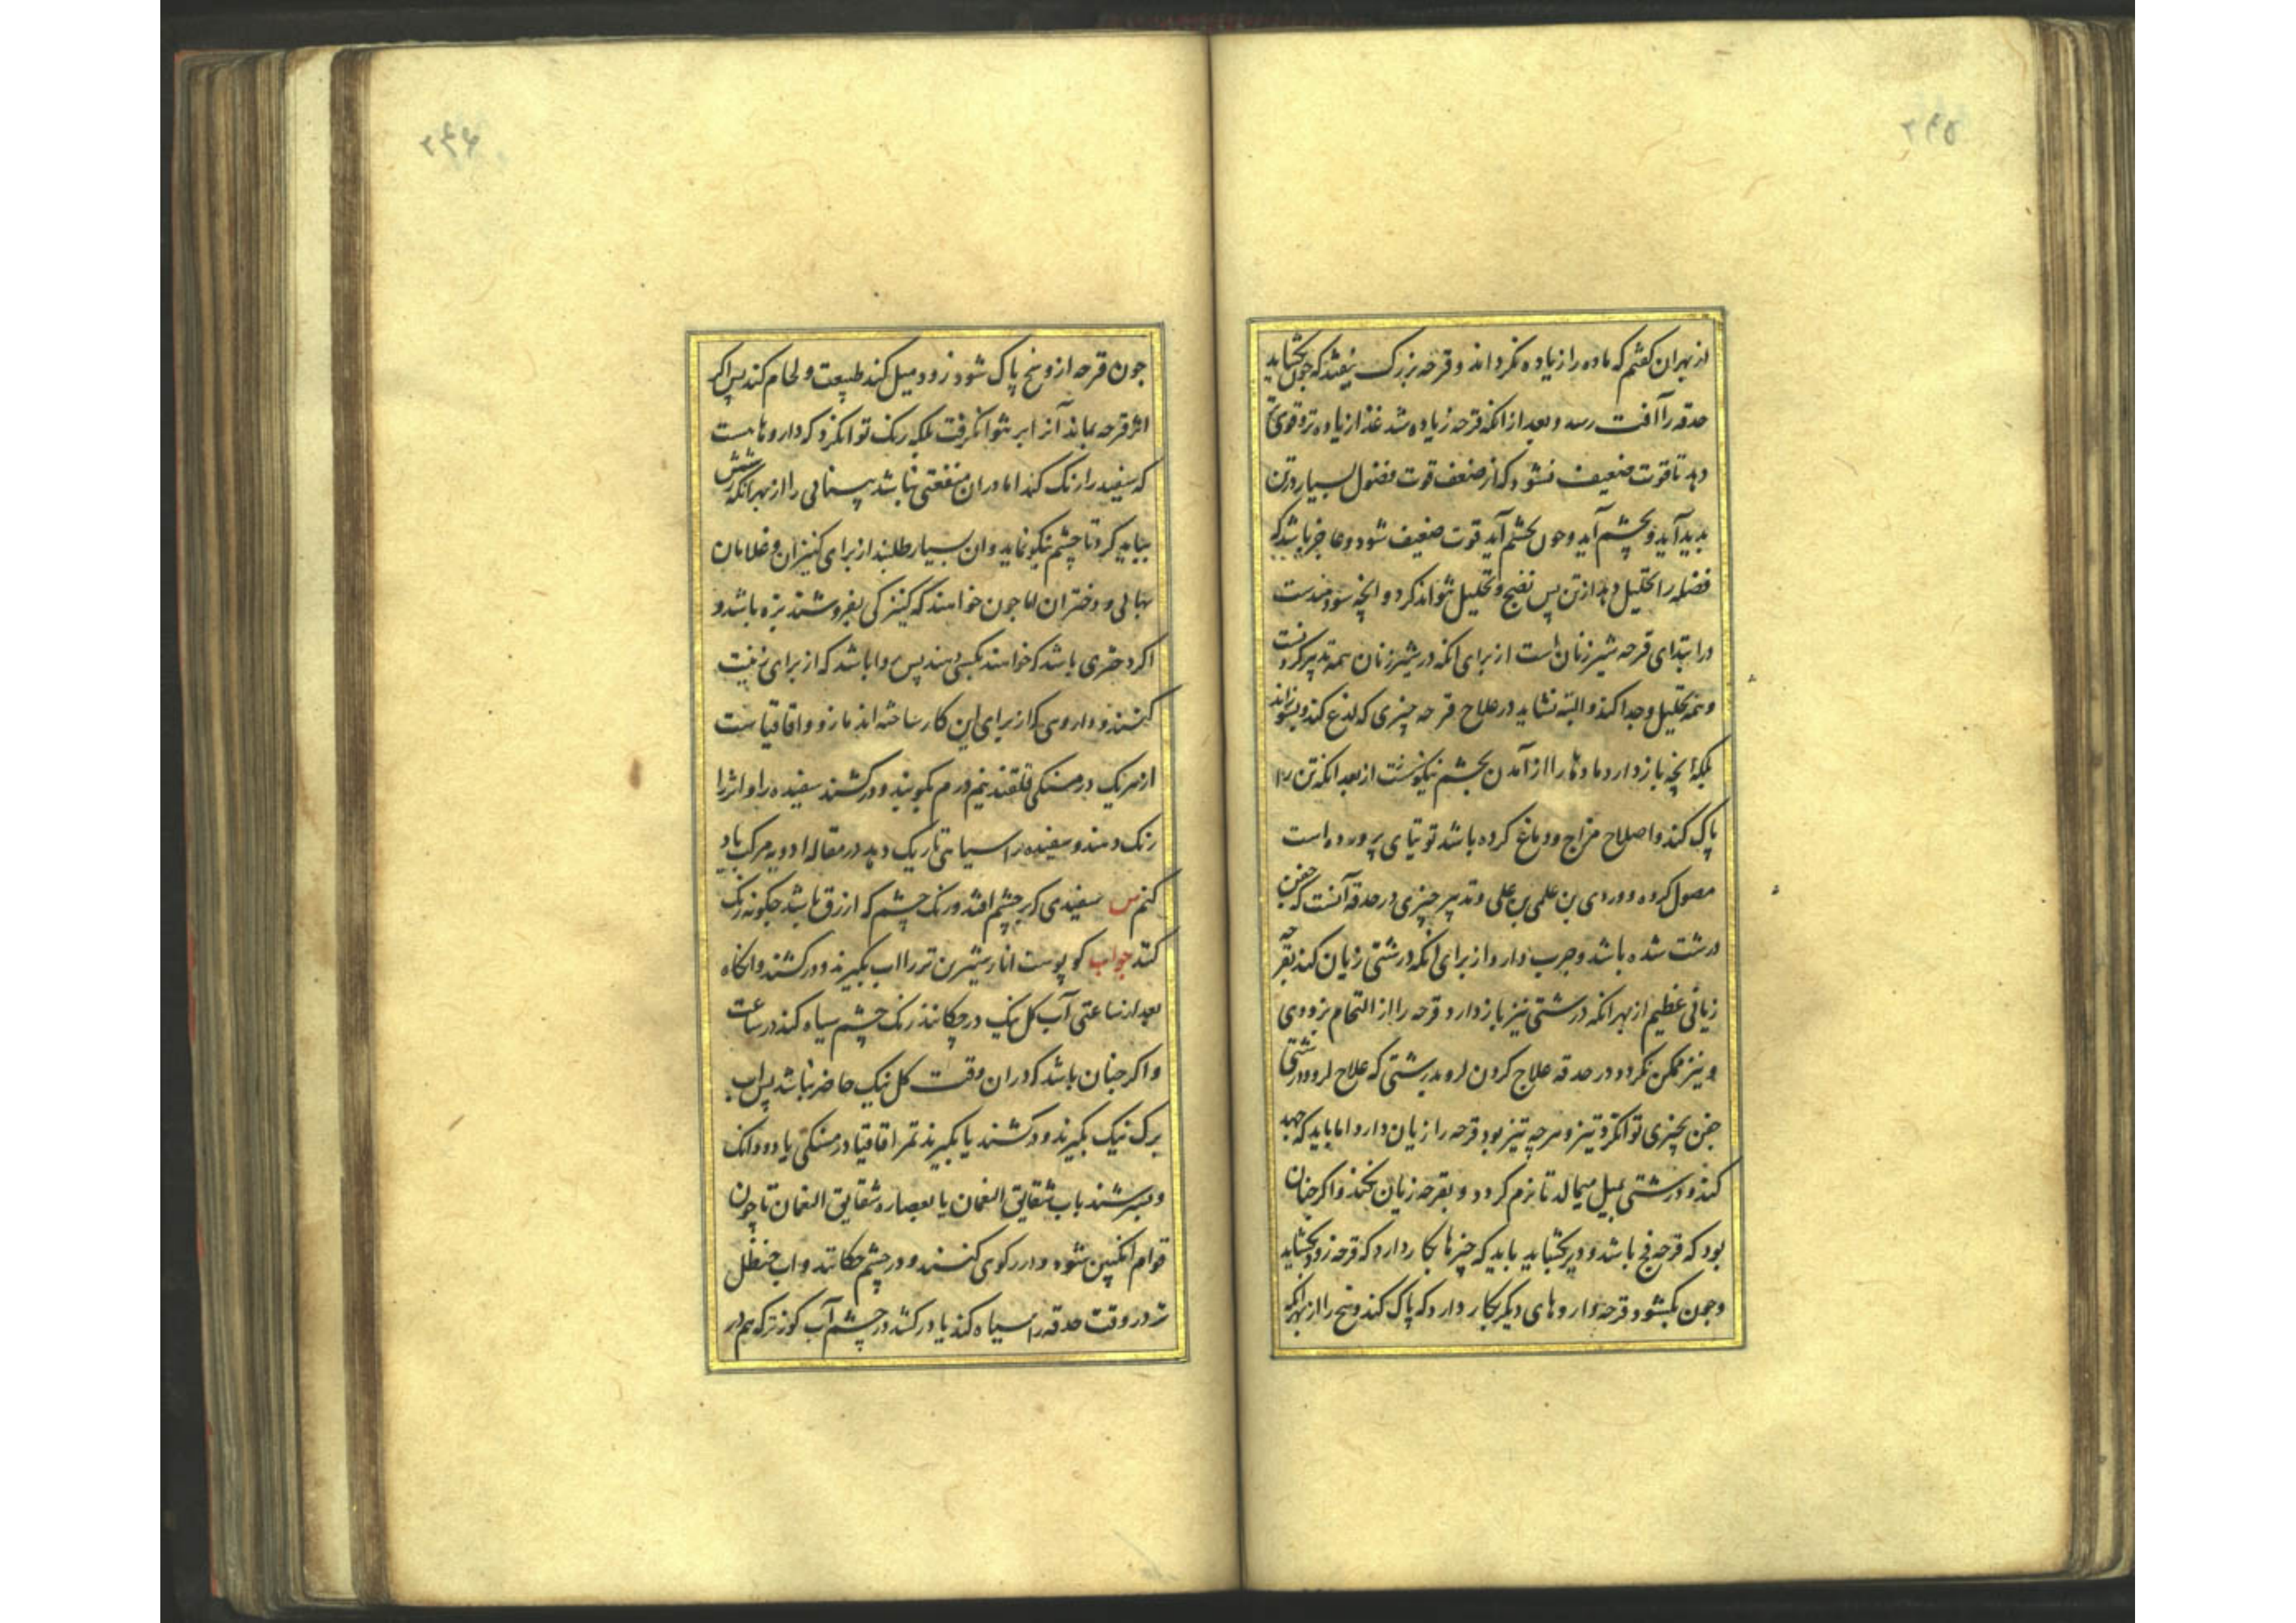 ۲۴۵
از بهر ان کفتم که ماده را زیاده نکرداند و قرحه بزرک نیفتد که چون بکشاید
حدقه را آفت رسد و بعد از انکه قرحه زیاده شد غذا زیاده تر و قوی تر
دهد تا قوت ضعیف نشود که از ضعف قوت فضول بسیار در تن
بدید آید و بچشم آید و چون بچشم آید قوت ضعیف شود و عاجز باشد که
فضله را تحلیل دهد از تن پس نضج و تحلیل نتواند کرد و انچه سودمندست
در ابتدای قرحه شیر زنان است از برای انکه در شیر زنان همه تدبیر کردنست
و همه تحلیل و جدا کند و البته نشاید در علاج قرحه چیزی که لذع کند و بسوزاند
بلکه انچه باز دارد مادها را از آمدن بچشم نیکوست از بعد انکه تن را
پاک کند و اصلاح مزاج و دماغ کرده باشد توتیای پرورده است
مصول کرده و وردی بن علی و تدبیر چیزی در حدقه آنست که جفن
درشت شده باشد و جرب دارد از برای انکه درشتی زیان کند بقرحه
زیانی عظیم از بهر انکه درشتی نیز باز دارد قرحه را از التحام بزودی
و نیز ممکن نکردد در حدقه علاج کردن درشتی که علاج درشتی
جفن بچیزی توان کرد تیز و هرچه تیز بود قرحه را زیان دارد اما باید که جهد
کند و درشتی بمیل میمالد تا نرم کردد و بقرحه زیان نکند و اکر چنان
بود که قرحه فج باشد و دیر بکشاید باید که چیزها بکار دارد که قرحه زود بکشاید
و چون بکشود قرحه داروهای دیکر بکار دارد که پاک کند وسخ را از بهر انکه
۲۴۶
جون قرحه از وسخ پاک شود زود میل کند طبیعت و لحام کند پس اکر
اثر قرحه بماند آنرا بر نتوان کرفت بلکه رنک توان کرد که داروها هست
که سفید را رنک کند اما در ان منفعتی نباشد بینائی را از بهر انکه رنکش
بباید کرد تا چشم نیکو نماید و ان بسیار طلبند از برای کنیزان و غلامان
بهائی و دختران اما جون خواهند که کنیزکی بفروشند بزه باشد و
اکر دختری باشد که خواهند بکسی دهند پس روا باشد که از برای زینت
کنند و داروی که از برای این کار ساخته اند مازو و اقاقیا ست
از هر یک درمسنکی قلقند نیم درم بکوبند و درکشند سفیده را و اثر را
رنک دهند و سفیده را سیاهی تاریک دهد در مقاله ادویه مرکب یاد
کنم س سفیدی که بر چشم افتد و رنک چشم که ازرق باشد جکونه رنک
کند جواب کو پوست انار شیرین تر را اب بکیرند و درکشند و انکاه
بعد از ساعتی آب کل نیک درچکانند رنک چشم سیاه کند در ساعت
و اکر جنان باشد که در ان وقت کل نیک حاضر نباشد پس اب
برک نیک بکیرند و درکشند یا بکیرند ثمر اقاقیا درمسنکی یا دو دانک
و بسرشند باب شقایق النعمان یا بعصاره شقایق النعمان تا چون
قوام انکبین شود و در رکوی کنند و در چشم چکانند و اب حنظل
تر در وقت حدقه را سیاه کند یا درکشد در چشم آب کوز تر که هم در